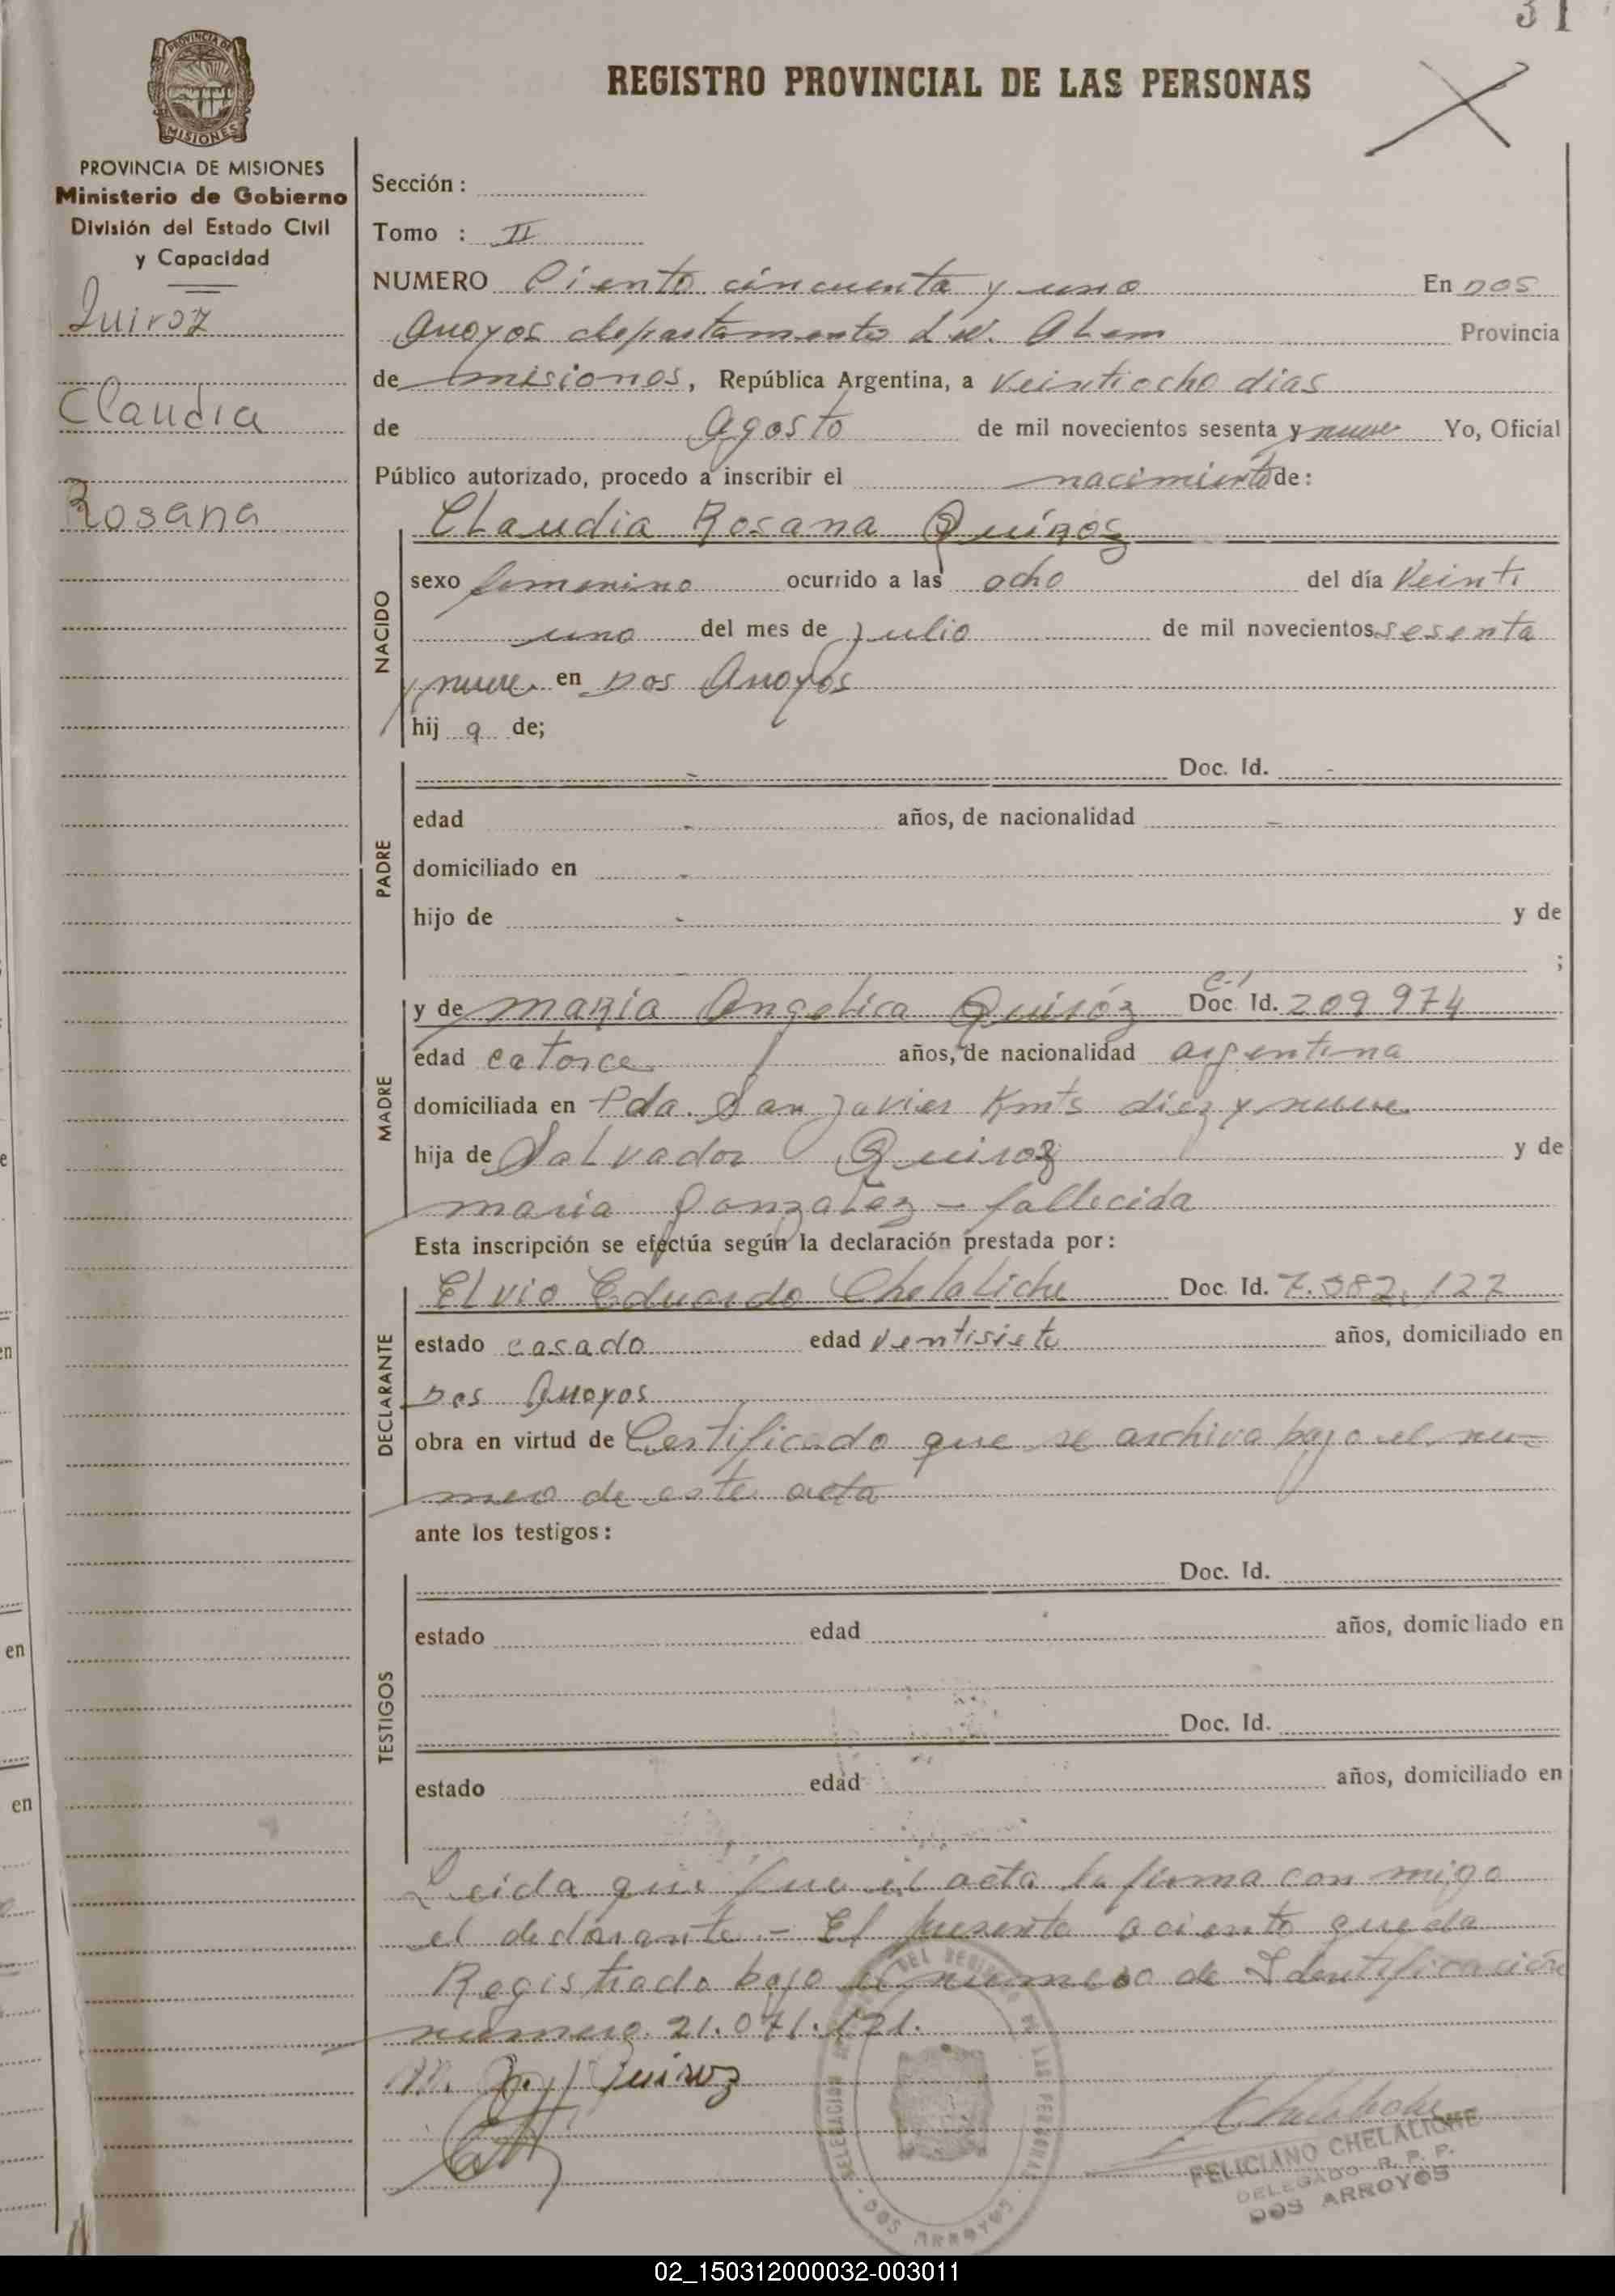 31
PROVINCIA DE
MISIONES
REGISTRO PROVINCIAL DE LAS PERSONAS
PROVINCIA DE MISIONES
Ministerio de Gobierno
División del Estado Civil
y Capacidad
Quiroz
Claudia
Rosana
Sección :
Tomo : II
NUMERO Ciento cincuenta y uno En Dos
Arroyos departamento L.N. Alem Provincia
de misiones, República Argentina, a Veintiocho dias
de Agosto de mil novecientos sesenta y nueve Yo, Oficial
Público autorizado, procedo a inscribir el nacimiento de:
NACIDO
Claudia Rosana Quiroz
sexo femenino ocurrido a las ocho del día Veinti
uno del mes de Julio de mil novecientos sesenta
y nueve en Dos Arroyos
hij a de;
PADRE
- Doc. Id. -
edad - años, de nacionalidad -
domiciliado en -
hijo de - y de
- ;
MADRE
C.I
y de maria Angelica Quiróz Doc. Id. 209 974
edad catorce años, de nacionalidad argentina
domiciliada en Pda. San Javier Kmts diez y nueve
hija de Salvador Quiroz y de
maria Gonzalez - fallecida
Esta inscripción se efectúa según la declaración prestada por:
DECLARANTE
Elvio Eduardo Chelaliche Doc. Id. 7.582.127
estado casado edad ventisiete años, domiciliado en
Dos Arroyos
obra en virtud de Certificado que se archiva bajo el nu-
mero de este acta
ante los testigos:
TESTIGOS
Doc. Id.
estado edad años, domiciliado en
Doc. Id.
estado edad años, domiciliado en
Leida que fue el acta la firma con migo
el declarante.- El presente aciento queda
Registrado bajo el numero de Identificación
número 21.071.121.
Quiroz
Chelaliche
FELICIANO CHELALICHE
DELEGADO R. P. P.
DOS ARROYOS
DELEGACION DEL REGISTRO DE LAS PERSONAS
DOS ARROYOS
02_150312000032-003011